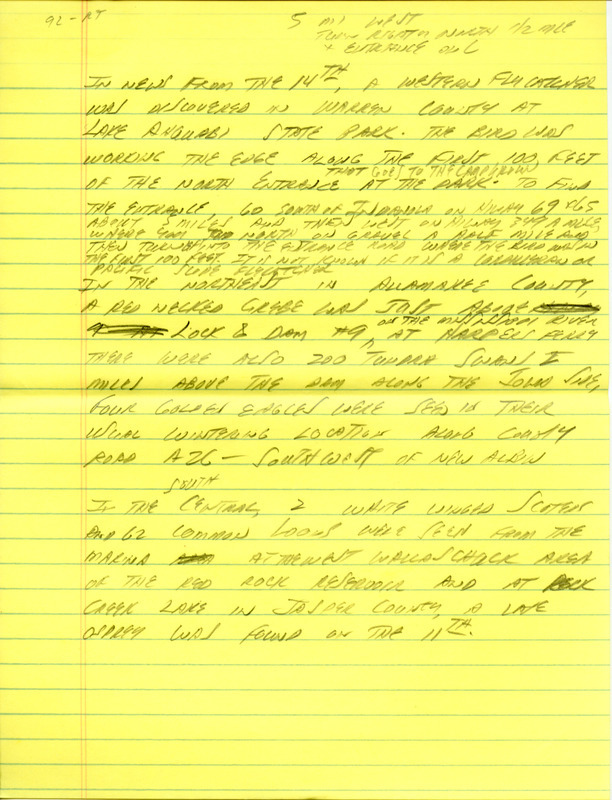 5 mi WEST
TURN RIGHT OR NORTH 1/2 MILE
+ ENTRANCE ON L
IN NEWS FROM THE 14TH, A WESTERN FLYCATCHER
WAS DISCOVERED IN WARREN COUNTY AT
LAKE AHQUABI STATE PARK. THE BIRD WAS
WORKING THE EDGE ALONG THE FIRST 100 FEET
THAT GOES TO THE CAMPGROUND
OF THE NORTH ENTRANCE AT THE PARK. TO FIND
THE ENTRANCE GO SOUTH OF INDIANOLA ON HIWAY 69 & 65
ABOUT MILES AND THEN WEST ON HIWAY 349 A MILE,
WHERE YOU NORTH ON GRAVEL A HALF MILE AND
THEN TURN INTO THE ENTRANCE ROAD WHERE THE BIRD WAS IN
THE FIRST 100 FEET. IT IS NOT KNOWN IF IT IS A CORDILLERAN OR
PACIFIC SLOPE FLYCATCHER
IN THE NORTHEAST IN ALLAMAKEE COUNTY,
A RED NECKED GREBE WAS JUST ABOVE
ON THE MISSISSIPPI RIVER
LOCK & DAM #9 AT HARPERS FERRY
THERE WERE ALSO 200 TUNDRA SWANS
MILES ABOVE THE DAM ALONG THE IOWA SIDE,
FOUR GOLDEN EAGLES WERE SEEN IN THEIR
USUAL WINTERING LOCATION ALONG COUNTY
ROAD A26 - SOUTHWEST OF NEW ALBIN
SOUTH
IN THE CENTRAL, 2 WHITE WINGED SCOTERS
AND 62 COMMON LOONS WERE SEEN FROM THE
MARINA AT THE WEST WALLASHUCK AREA
OF THE RED ROCK RESERVOIR AND AT ROCK
CREEK LAKE IN JASPER COUNTY, A LATE
OSPREY WAS FOUND ON THE 11TH.